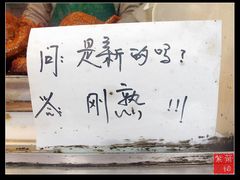 问：是新的吗？
答：刚熟!!!